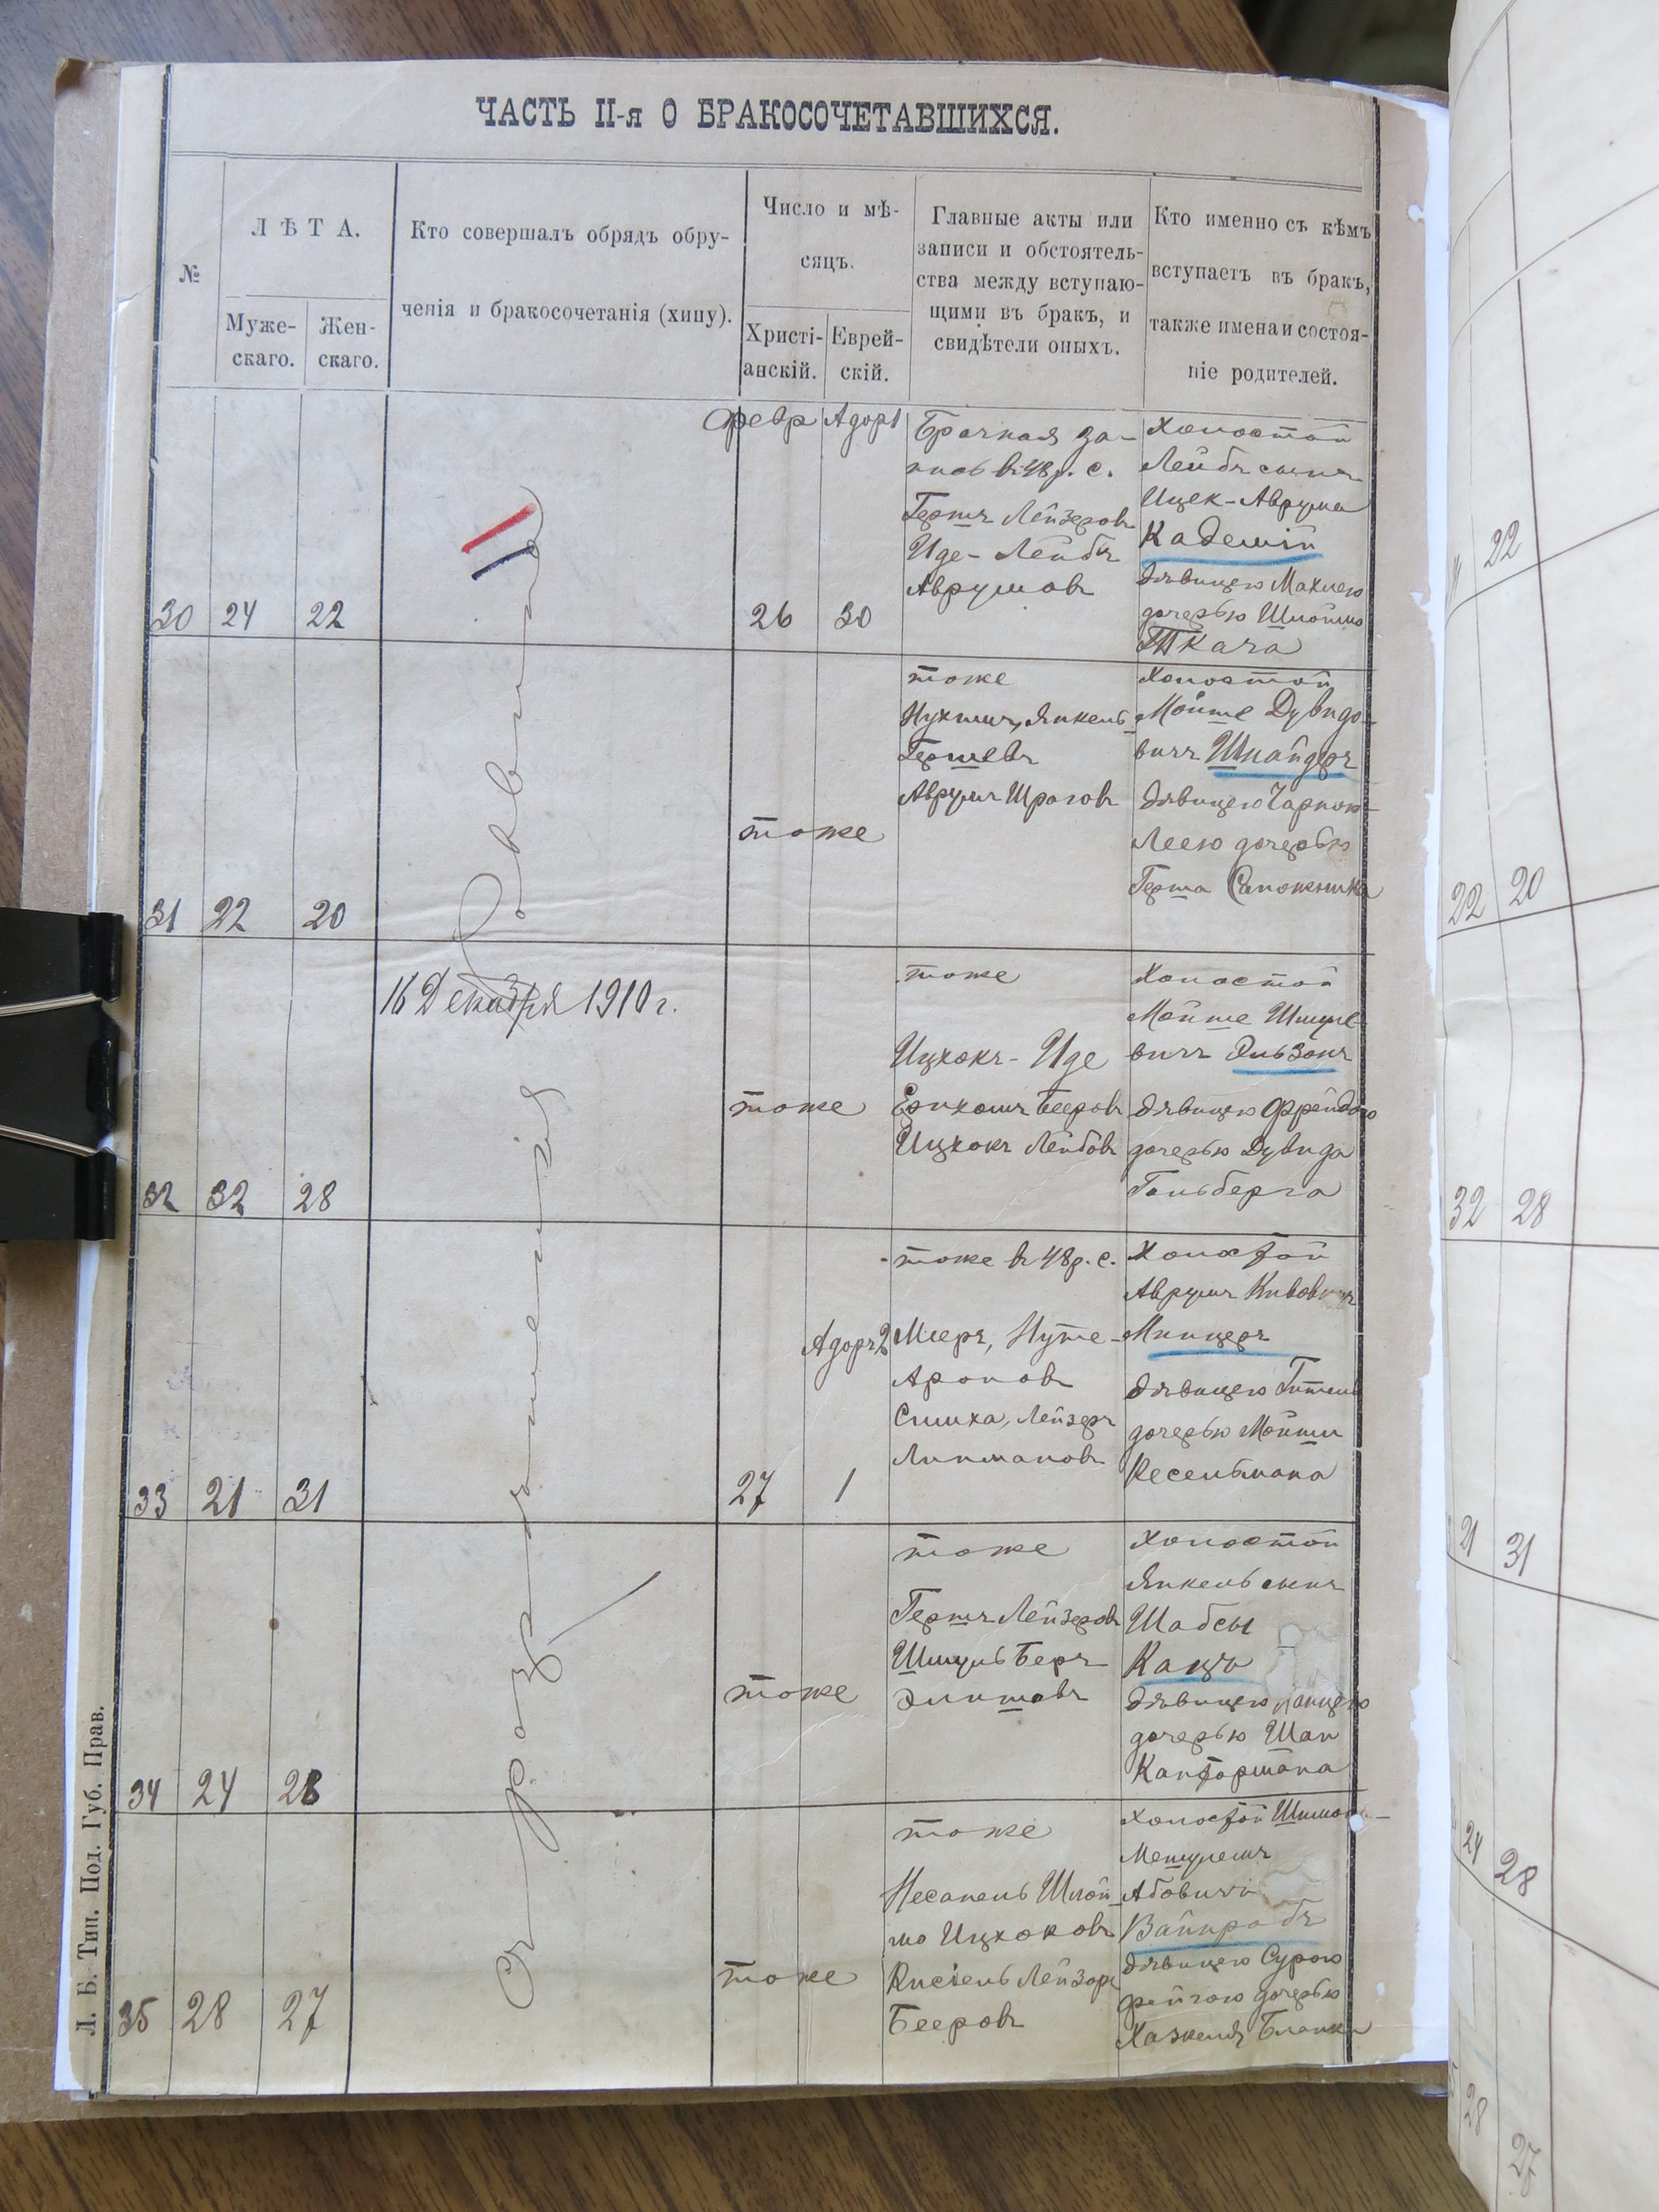 ЧАСТЬ II-я О БРАКОСОЧЕТАВШИХСЯ.
№
ЛѢТА.
Муже-
скаго.
Жен-
скаго.
Кто совершалъ обрядъ обру-
ченія и бракосочетанія (хипу).
Число и мѣ-
сяцъ.
Христі-
анскій.
Еврей-
скій.
Главные акты или
записи и обстоятель-
ства между вступаю-
щими въ бракъ, и
свидѣтели оныхъ.
Кто именно съ кѣмъ
вступаетъ въ бракъ,
также имена и состоя-
ніе родителей.
Февр Адоръ 1
30 24 22
26 30
Брачная за-
пись в 48 р. с.
Гершъ Лейзеровъ
Иде-Лейбъ
Аврумовъ
Холостой
Лейбъ сынъ
Ицек-Аврума
Кадешій
дѣвицею Махлею
дочерью Шлоймо
Ткача
31 22 20
тоже
тоже
Нухимъ, Янкель
Гершевъ
Аврумъ Шраговъ
Холостой
Мойше Дувидо-
вичъ Шнайдеръ
дѣвицею Чарною
Леею дочерью
Герша Сапожника
16 Декабря 1910 г.
32 32 28
тоже
тоже
Ицхокъ-Иде
Ерихомъ Бееровъ
Ицхокъ Лейбовъ
Холостой
Мойше Шмуле-
вичъ Эльзонъ
дѣвицею Фрейдою
дочерью Дувида
Гольберга
33 21 31
Адоръ 2
27 1
тоже в 48 р. с.
Мееръ, Нуте-
Ароновъ
Симха, Лейзеръ
Липмановъ
Холостой
Аврумъ Кивовичъ
Минцеръ
дѣвицею Гитлею
дочерью Мойши
Кесельмана
34 24 28
тоже
тоже
Гершъ Лейзеровъ
Шмуль Беръ
Элишовъ
Холостой
Янкель сынъ
Шабсы
Кацъ
дѣвицею
дочерью Шаи
Кантормана
35 28 27
тоже
тоже
Несанель Шлой-
мо Ицхоковъ
Кисіель Лейзоръ
Бееровъ
Холостой
Мешулемъ
Абовичъ
Вайнрабъ
дѣвицею Сурою
Фейгою дочерью
Хаскеля Бланка
Ревинъ
Л. Б. Тип. Под. Губ. Прав.
22
22 20
32 28
21 31
24 28
28 27